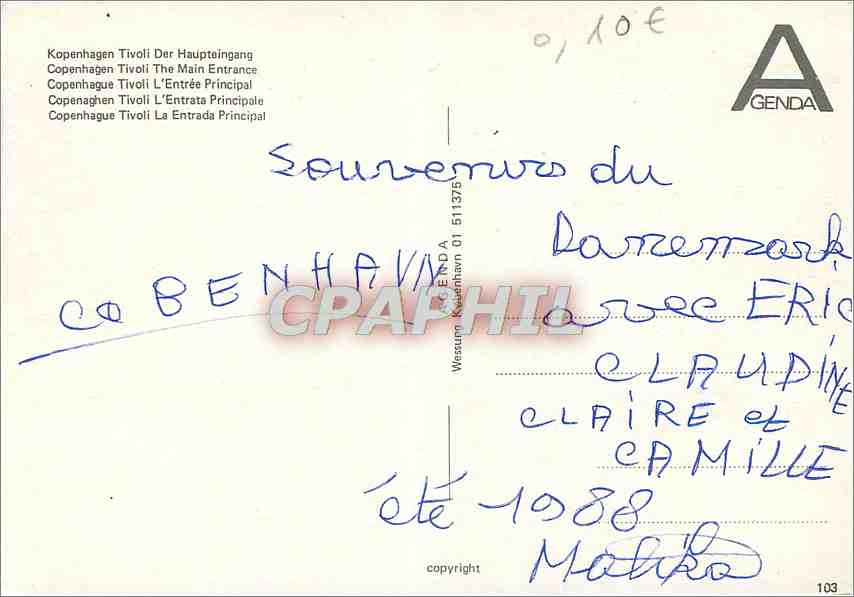 0,10 €
Kopenhagen Tivoli Der Haupteingang
Copenhagen Tivoli The Main Entrance
Copenhague Tivoli L'Entrée Principal
Copenaghen Tivoli L'Entrata Principale
Copenhague Tivoli La Entrada Principal
AGENDA
Souvenirs du
Danemark
avec ERIC
CLAUDINE
CLAIRE et
CAMILLE
été 1988
Malika
COBENHAVN
AGENDA
Wessung København 01 511375
CPAPHIL
copyright
103